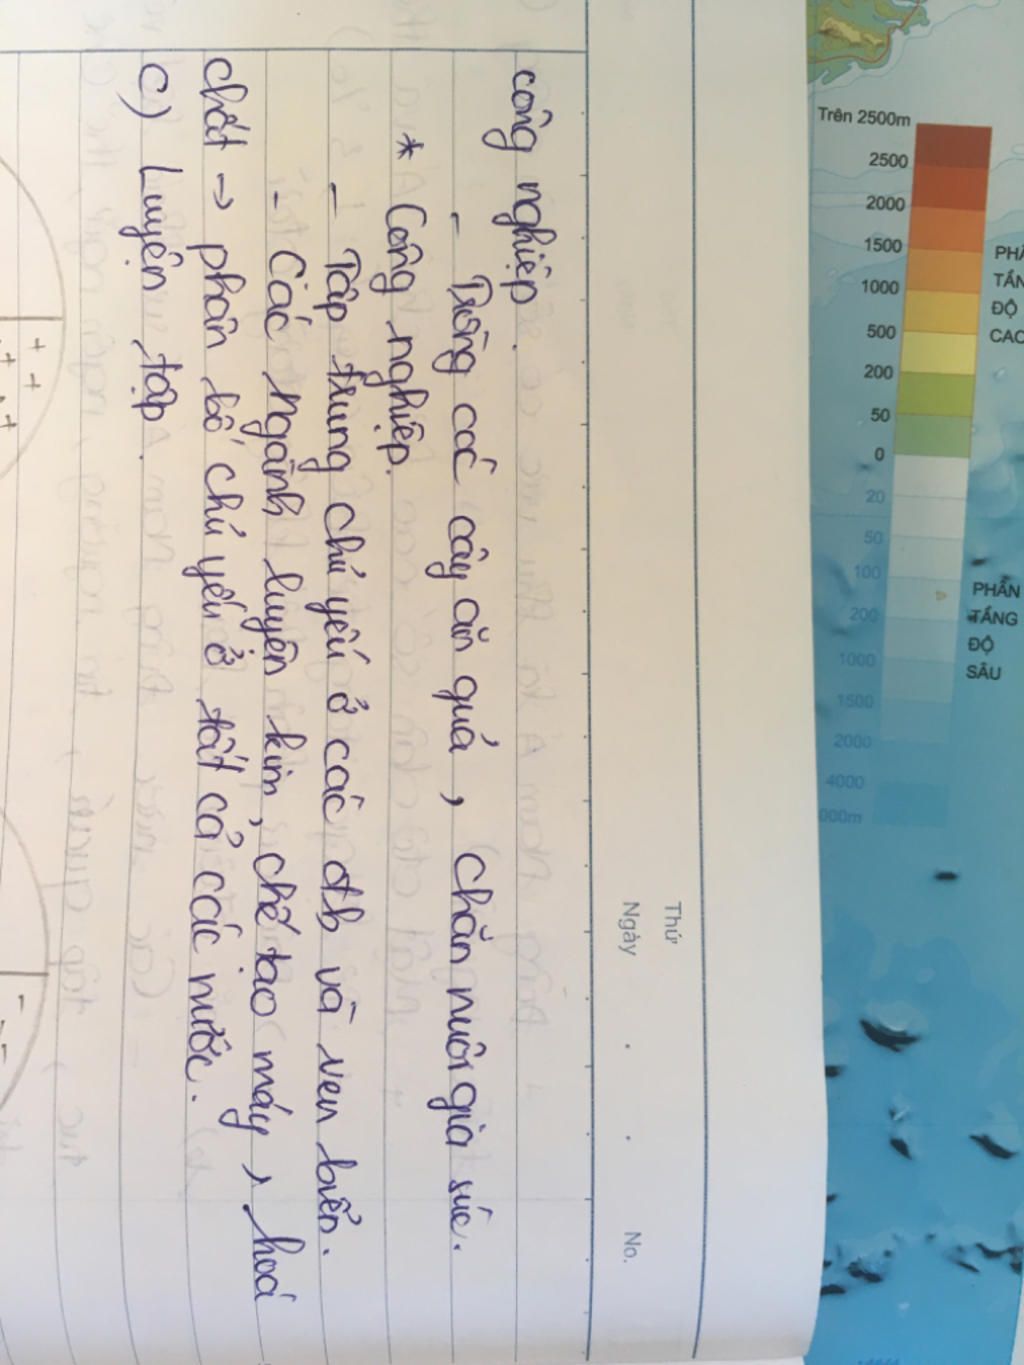 Thứ
Ngày . . No.
công nghiệp.
- Trồng các cây ăn quả, chăn nuôi gia súc.
* Công nghiệp.
- Tập trung chủ yếu ở các đb và ven biển.
- Các ngành luyện kim, chế tạo máy, hoá
chất → phân bố chủ yếu ở tất cả các nước.
c) Luyện tập.
Trên 2500m
2500
2000
1500
1000
500
200
50
0
20
50
100
200
1000
1500
2000
4000
000m
TẦN
ĐỘ
CAO
PHẦN
TẦNG
ĐỘ
SÂU